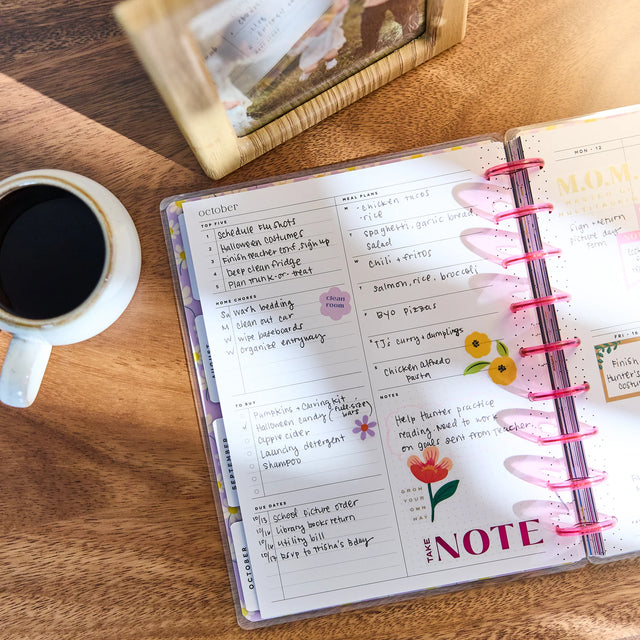 october
TOP FIVE
1 Schedule flu shots
2 Halloween costumes
3 Finish teacher conf. sign up
4 Deep clean fridge
5 Plan trunk-or-treat
HOME CHORES
Su wash bedding
M clean out car
W wipe baseboards
W organize entryway
clean room
TO BUY
Pumpkins + carving kit
Halloween candy (full size bars)
Apple cider
Laundry detergent
Shampoo
DUE DATES
10/13 School picture order
10/14 Library books return
10/14 Utility bill
RSVP to Trisha's Bday
MEAL PLANS
M chicken tacos
rice
T spaghetti, garlic bread
salad
W chili + fritos
T salmon, rice, broccoli
F BYO pizzas
S TJ's curry + dumplings
S Chicken alfredo
pasta
NOTES
Help Hunter practice
reading. Need to work
on goals sent from teacher.
GROW
YOUR
OWN
WAY
TAKE
NOTE
SEPTEMBER
OCTOBER
MON · 12
M.O.M.
Sign + return
picture day
form
FRI · 16
Finish
Hunter's